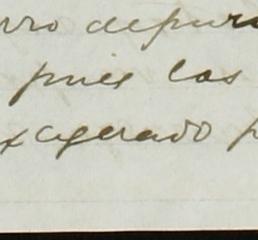 rro depura
pues las
xagerado p